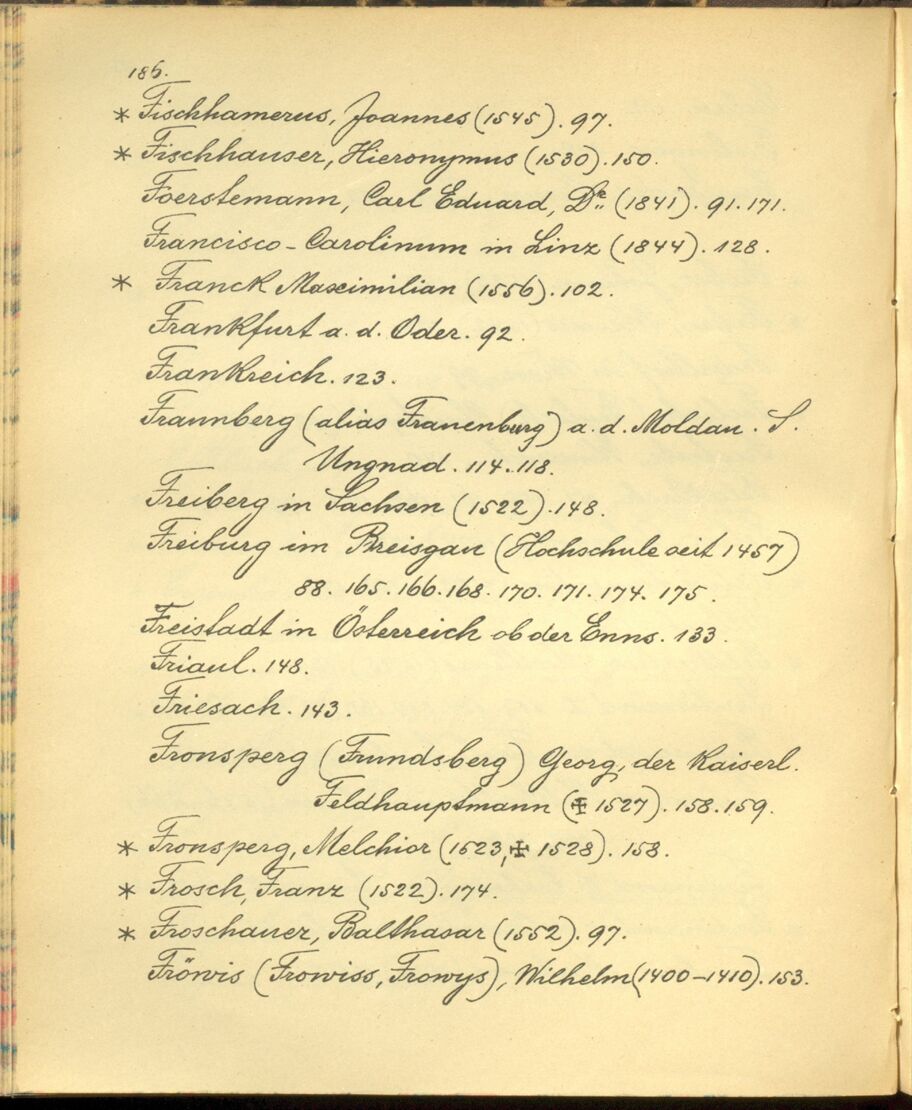 186.
* Fischhamerus, Joannes (1545). 97.
* Fischhauser, Hieronymus (1530). 150.
Foerstemann, Carl Eduard, Dr. (1841). 91. 171.
Francisco-Carolinum in Linz (1844). 128.
* Franck Maximilian (1556). 102.
Frankfurt a. d. Oder. 92.
Frankreich. 123.
Fraunberg (alias Frauenburg) a. d. Moldau. S.
Ungnad. 114. 118.
Freiberg in Sachsen (1522). 148.
Freiburg im Breisgau (Hochschule seit 1457)
88. 165. 166. 168. 170. 171. 174. 175.
Freistadt in Österreich ob der Enns. 133.
Friaul. 148.
Friesach. 143.
Fronsperg (Frundsberg) Georg, der Kaiserl.
Feldhauptmann (✠ 1527). 158. 159.
* Fronsperg, Melchior (1523, ✠ 1528). 158.
* Frosch, Franz (1522). 174.
* Froschauer, Balthasar (1552). 97.
Fröwis (Frowiss, Frowys), Wilhelm (1400-1410). 153.